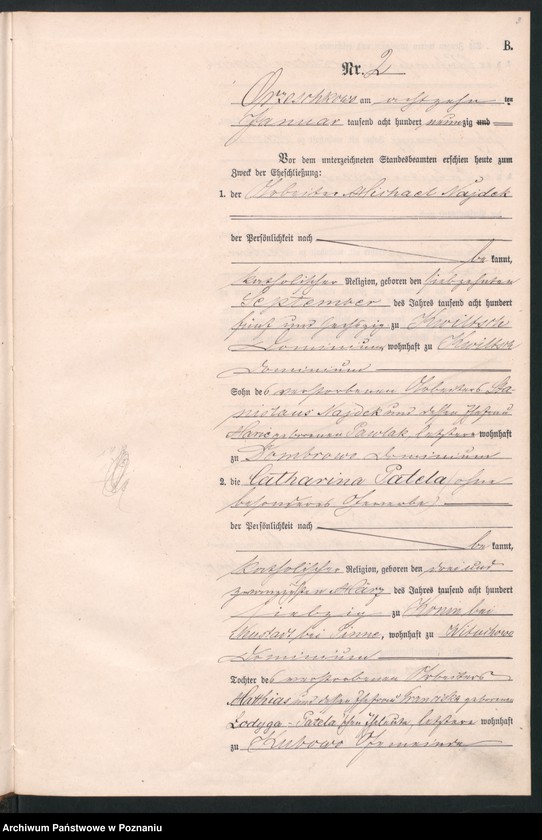 B.
Nr. 2
Orzeschkowo am achtzehn ten
Januar tausend acht hundert neunzig und
Vor dem unterzeichneten Standesbeamten erschien heute zum
Zweck der Eheschließung:
1. der Arbeiter Michael Najdek
der Persönlichkeit nach
be kannt,
katholischer Religion, geboren den siebzehnten
September des Jahres tausend acht hundert
fünf und sechszig zu Kwiltsch
Dominium, wohnhaft zu Kwiltsch
Dominium
Sohn des verstorbenen Arbeiters Sta-
nislaus Najdek und dessen Ehefrau
geborenen Pawlak, letztere wohnhaft
zu Dombrowo Dominium
2. die Catharina Patela, ohne
besonderes Gewerbe,
der Persönlichkeit nach
be kannt,
katholischer Religion, geboren den drei und
zwanzigsten März des Jahres tausend acht hundert
siebzig zu Konin bei
bei Pinne, wohnhaft zu
Dominium
Tochter des verstorbenen Arbeiters
Mathias und dessen Ehefrau Franciska geborenen
Lodyga - Patela'schen Eheleute, letztere wohnhaft
zu Gemeinde
Archiwum Państwowe w Poznaniu